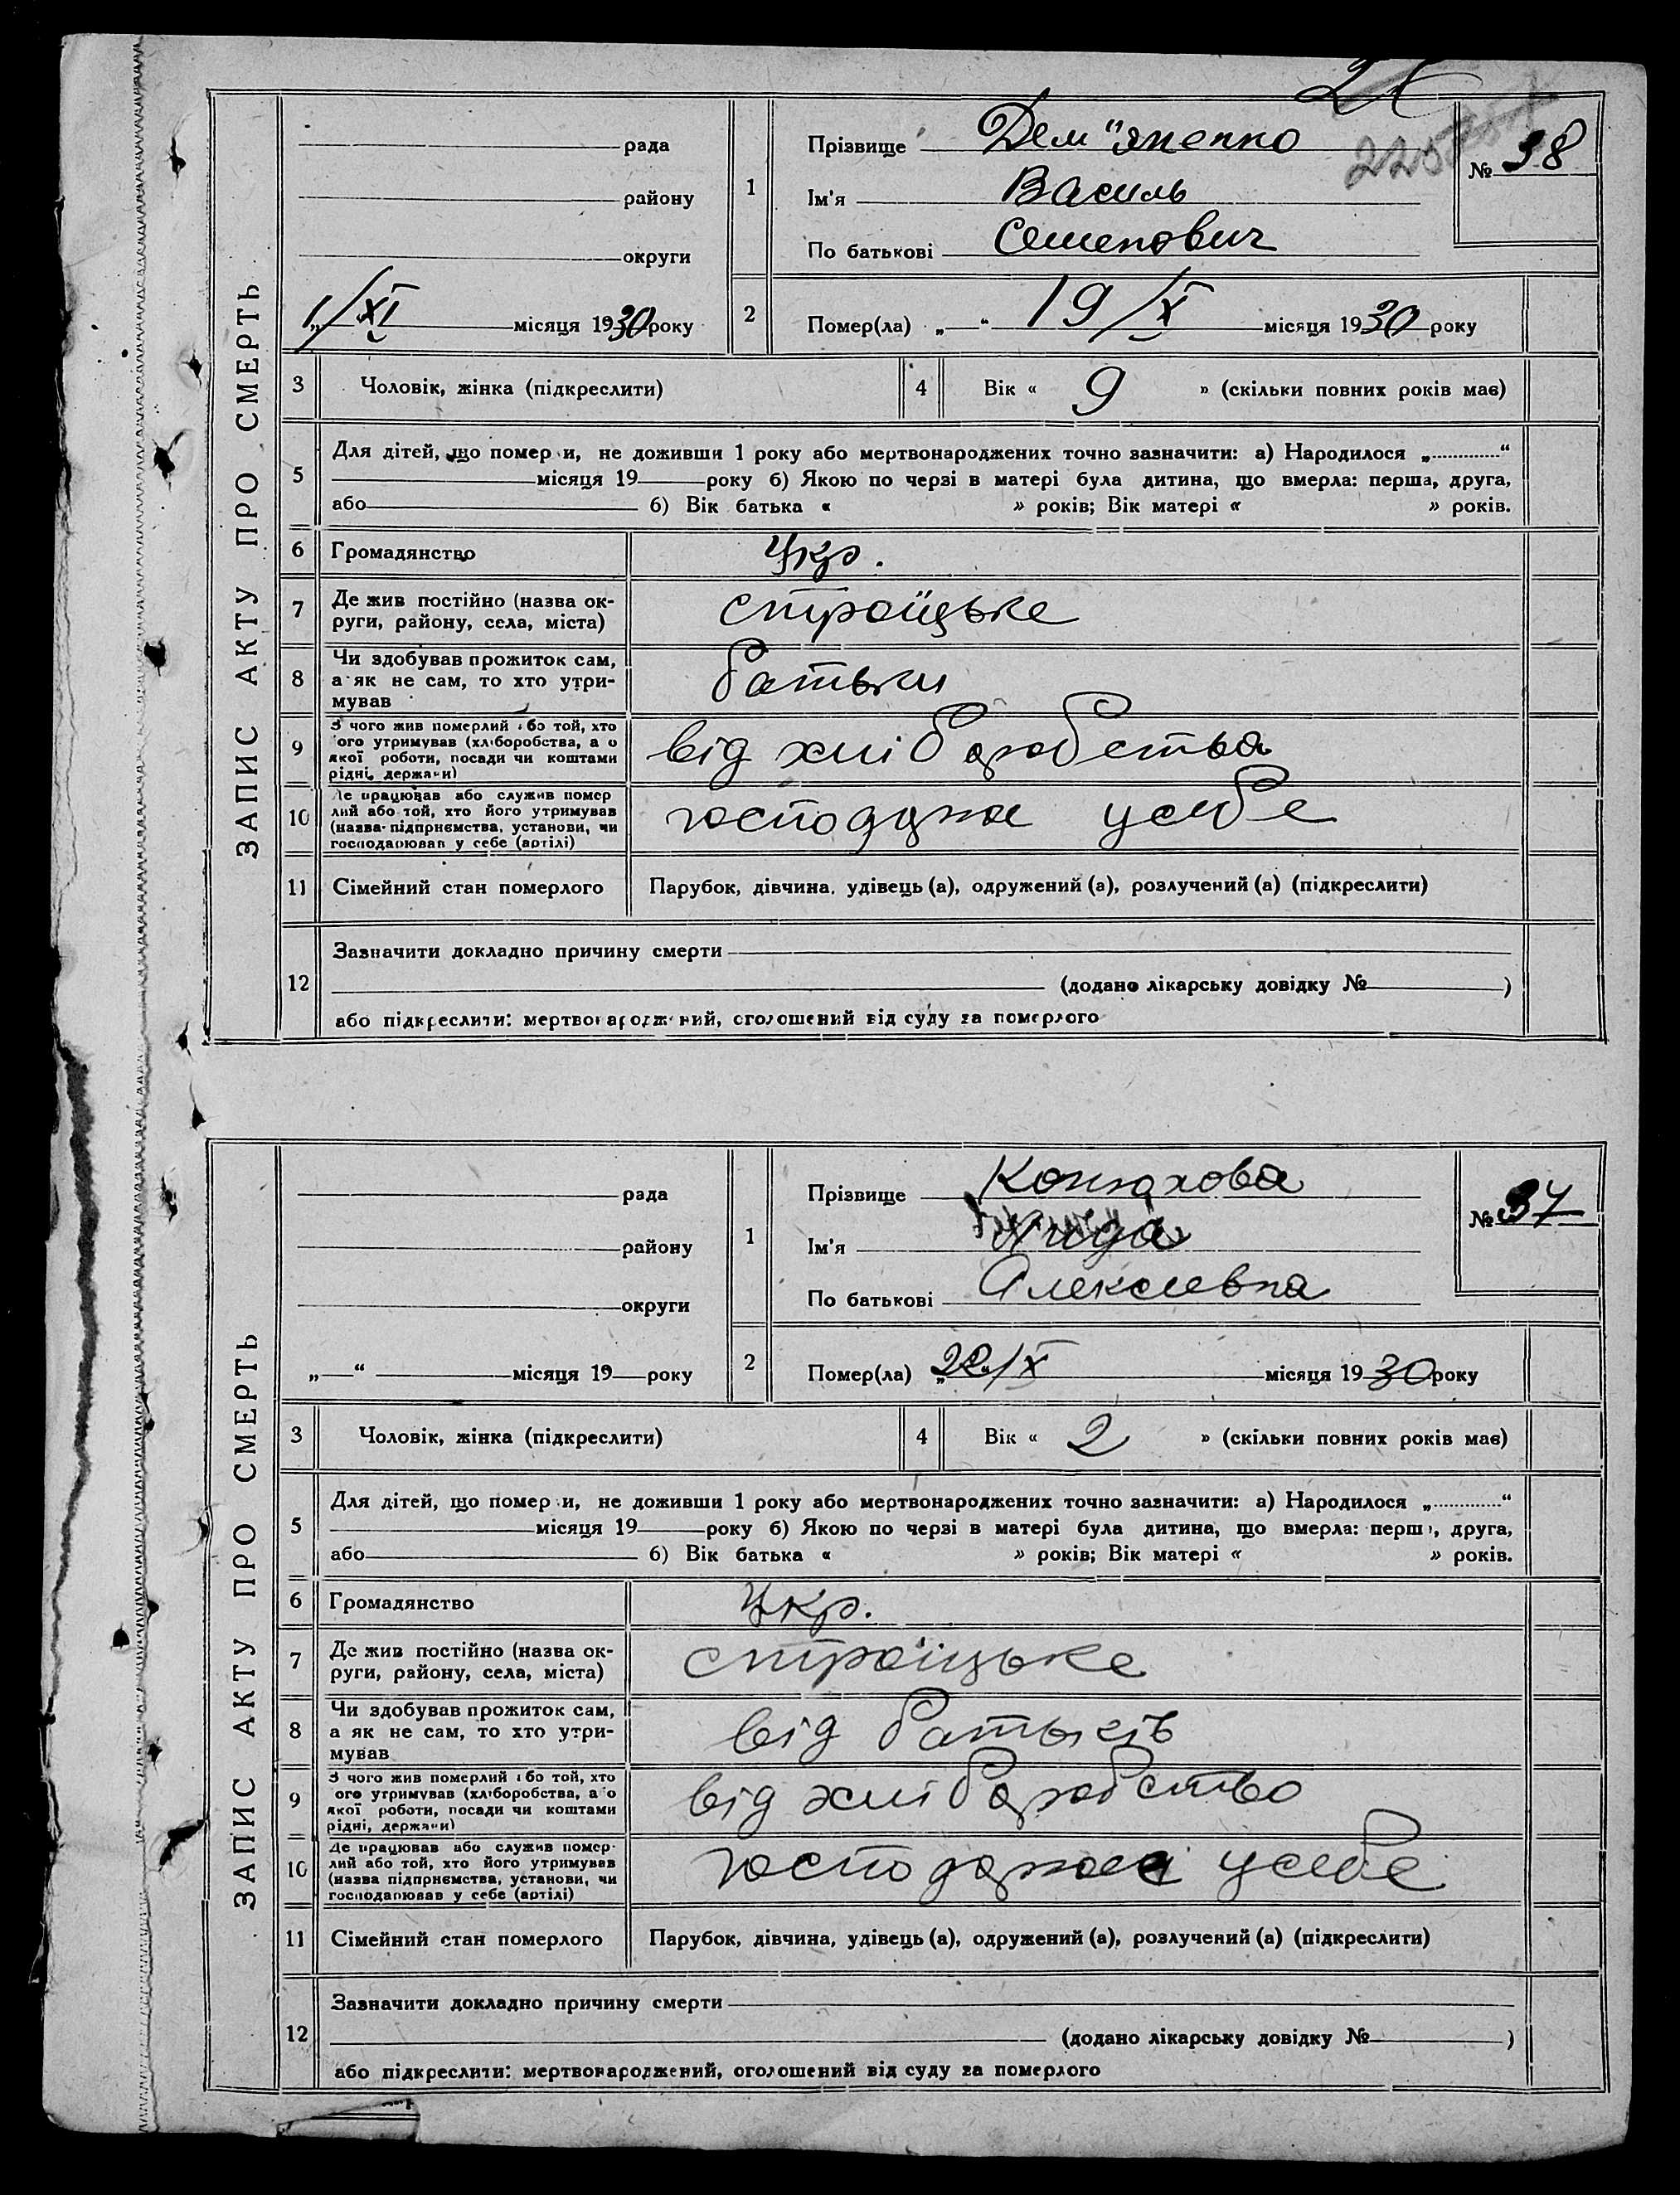 ЗАПИС АКТУ ПРО СМЕРТЬ
рада
району
округи
1/XI місяця 1930 року
1
Прізвище Дем"яненко
Ім'я Василь
По батькові Семенович
№ 38
2
Помер(ла) „ “ 19/X місяця 1930 року
3 Чоловік, жінка (підкреслити)
4 Вік « 9 » (скільки повних років має)
5
Для дітей, що помер и, не доживши 1 року або мертвонароджених точно зазначити: а) Народилося „ “
місяця 19 року б) Якою по черзі в матері була дитина, що вмерла: перша, друга,
або б) Вік батька « » років; Вік матері « » років.
6 Громадянство Укр.
7 Де жив постійно (назва ок-
руги, району, села, міста) Строїцьке
8 Чи здобував прожиток сам,
а як не сам, то хто утри-
мував батьки
9 З чого жив померлий або той, хто
ого утримував (хліборобства, а о
якої роботи, посади чи коштами
рідні, держави) від хліборобства
10 Де працював або служив помер
лий або той, хто його утримував
(назва підприємства, установи, чи
господарював у себе (артілі) усебе
11 Сімейний стан померлого Парубок, дівчина, удівець (а), одружений (а), розлучений (а) (підкреслити)
12
Зазначити докладно причину смерти
(додано лікарську довідку № )
або підкреслити: мертвонароджений, оголошений від суду за померлого
ЗАПИС АКТУ ПРО СМЕРТЬ
рада
району
округи
„ “ місяця 19 року
1
Прізвище Конюхова
Ім'я
По батькові Алексиевна
№ 37
2
Помер(ла) 22/X місяця 1930 року
3 Чоловік, жінка (підкреслити)
4 Вік « 2 » (скільки повних років має)
5
Для дітей, що помер и, не доживши 1 року або мертвонароджених точно зазначити: а) Народилося „ “
місяця 19 року б) Якою по черзі в матері була дитина, що вмерла: перш , друга,
або б) Вік батька « » років; Вік матері « » років.
6 Громадянство Укр.
7 Де жив постійно (назва ок-
руги, району, села, міста) Строїцьке
8 Чи здобував прожиток сам,
а як не сам, то хто утри-
мував від батьків
9 З чого жив померлий або той, хто
ого утримував (хліборобства, а о
якої роботи, посади чи коштами
рідні, держави) від хліборобство
10 Де працював або служив помер-
лий або той, хто його утримував
(назва підприємства, установи, чи
господарював у себе (артілі) усебе
11 Сімейний стан померлого Парубок, дівчина, удівець (а), одружений (а), розлучений (а) (підкреслити)
12
Зазначити докладно причину смерти
(додано лікарську довідку № )
або підкреслити: мертвонароджений, оголошений від суду за померлого